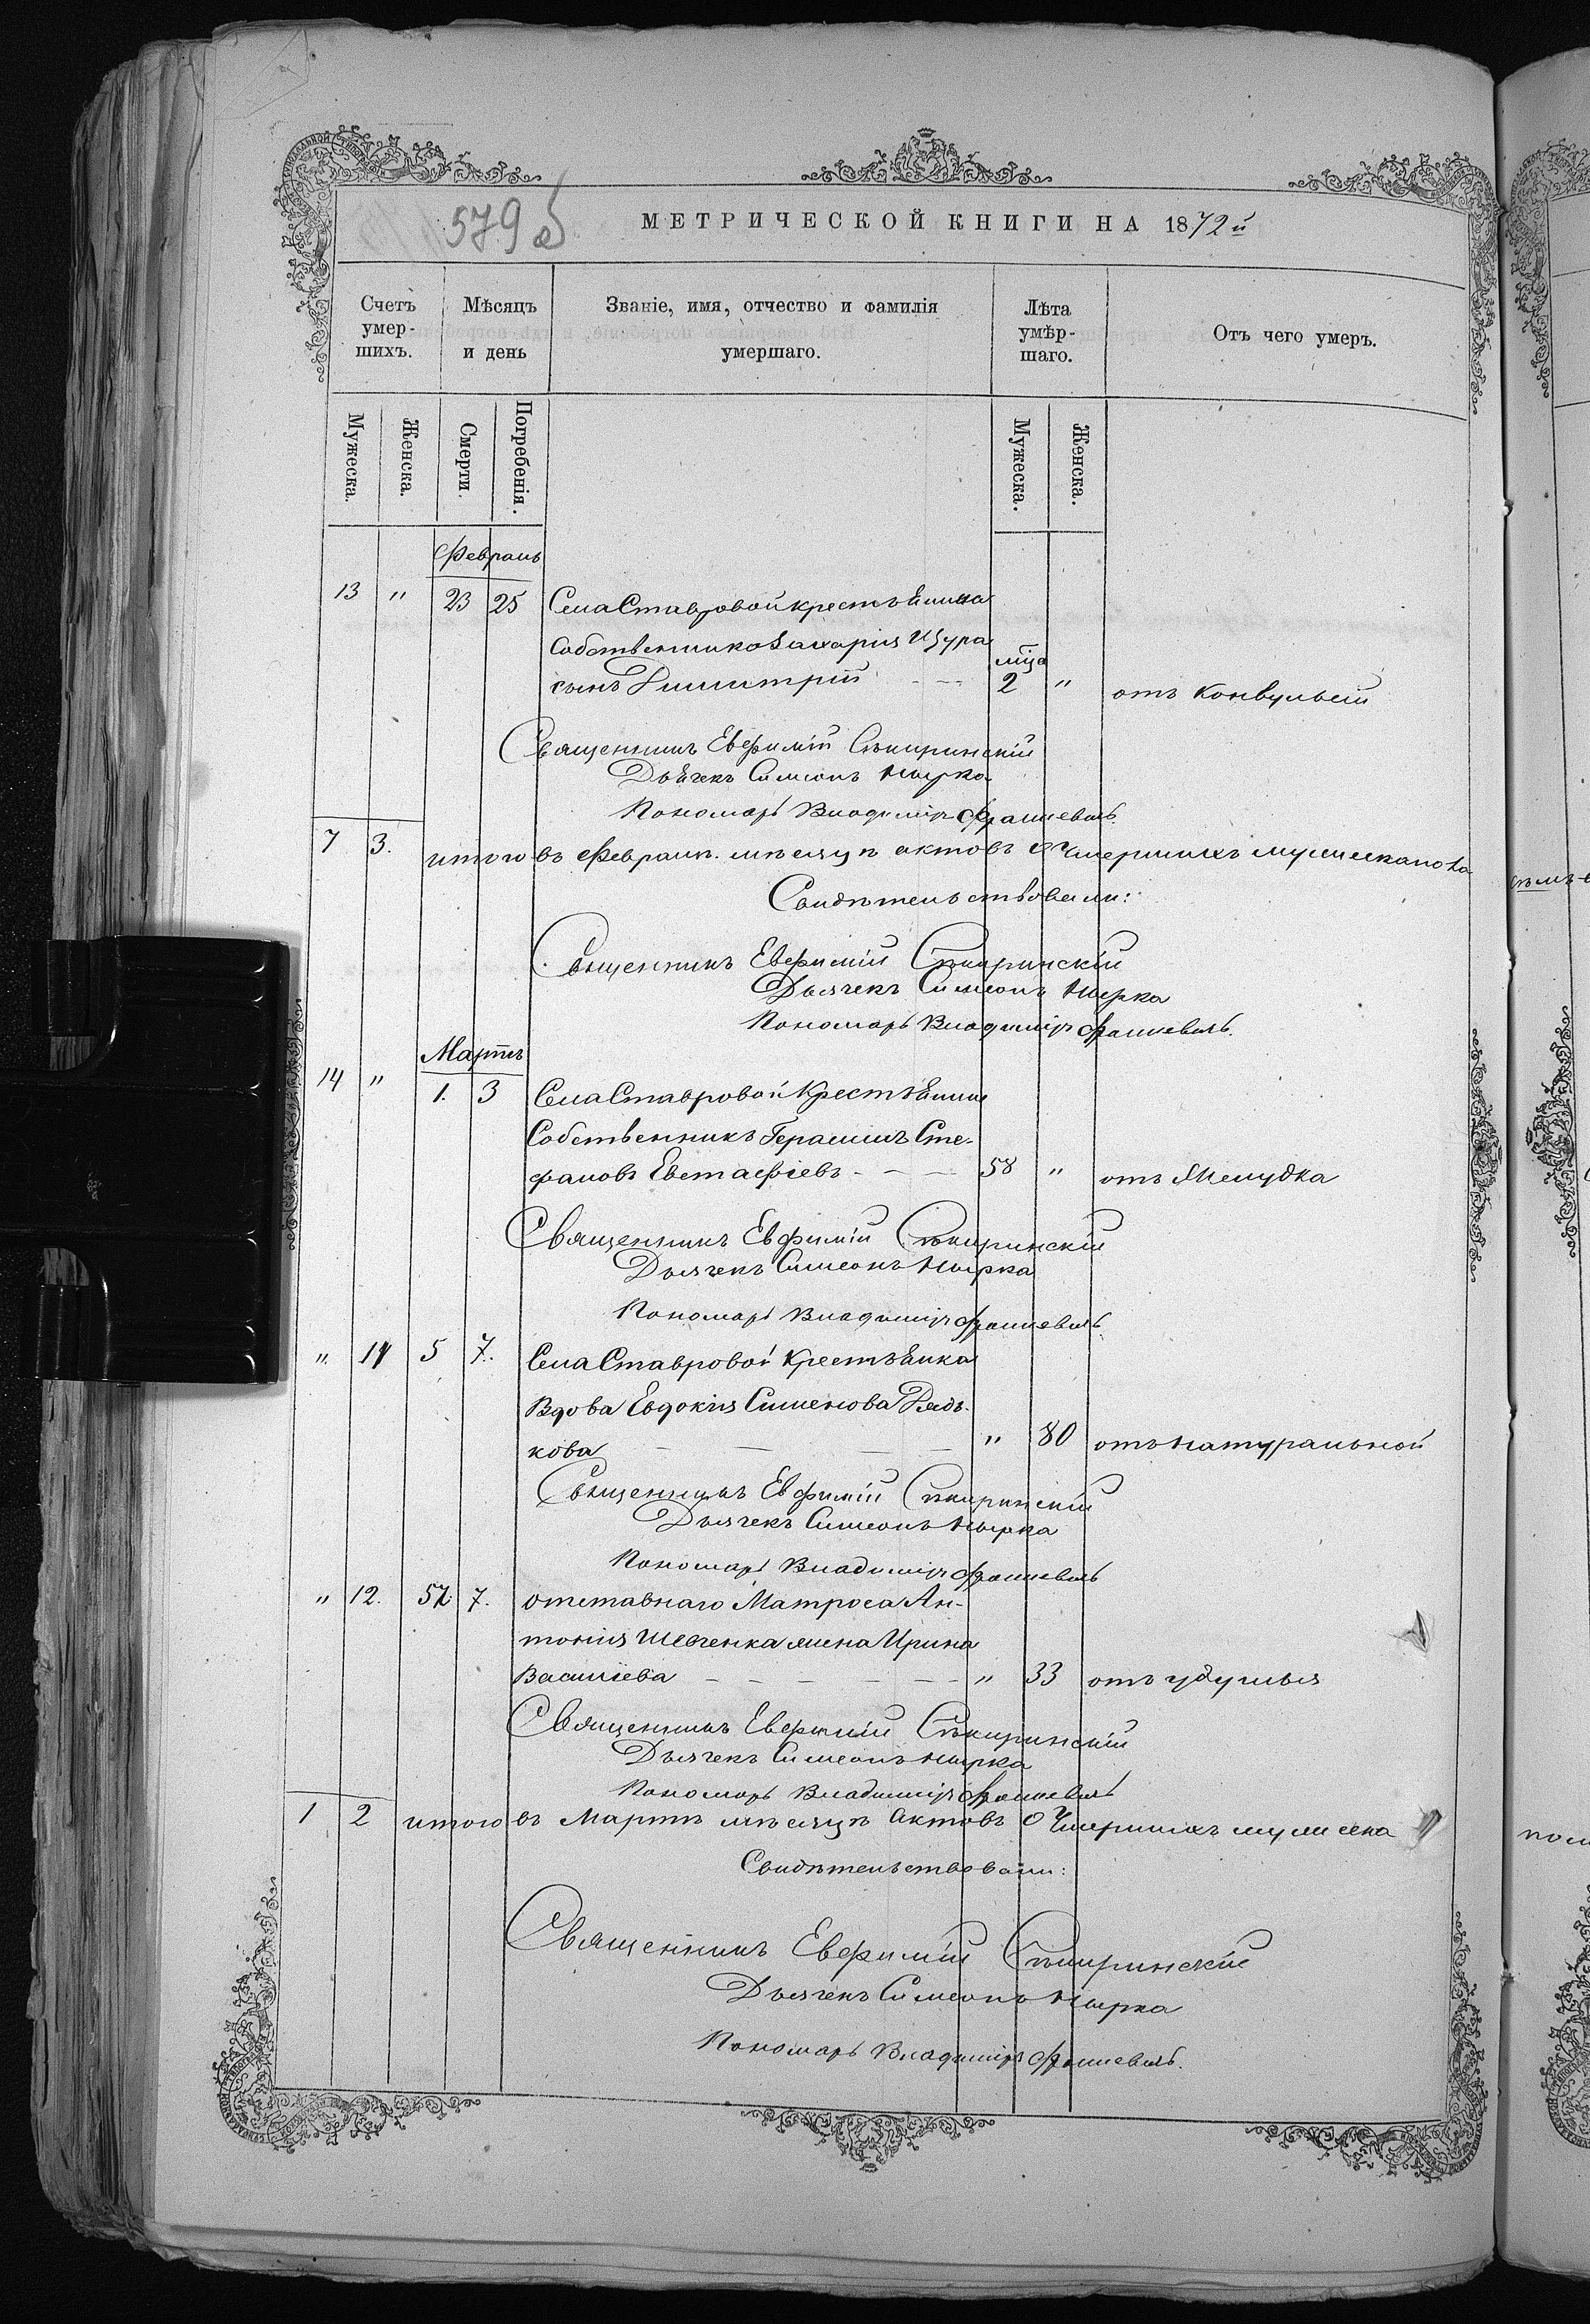 579 об
МЕТРИЧЕСКОЙ КНИГИ НА 1872й
Счетъ умер-шихъ.
Мѣсяцъ и день
Званіе, имя, отчество и фамилія умершаго.
Лѣта умѣр-шаго.
Отъ чего умеръ.
Мужеска.
Женска.
Смерти.
Погребенія.
Мужеска.
Женска.
Февраль
13 " 23 25 Села Ставровой крестьянина
собственника Захарія Щура
мца
сынъ Димитрій — — 2 " отъ конвульсій
Священникъ Евфимій Сѣкиринскій
Дьячекъ Симеонъ
Пономарь Владиміръ
7 3. итого въ Февралѣ мѣсяцѣ актовъ о Умершихъ мужеска пола
Свидѣтельствовали:
Священникъ Евфимій Сѣкиринскій
Дьячекъ Симеонъ
Пономарь Владиміръ
Мартъ
14 " 1. 3 Села Ставровой Крестьянинъ
Собственникъ Герасимъ Сте-
фановъ Евстафіевъ — — — 58 " отъ желудка
Священникъ Евфимій Сѣкиринскій
Дьячекъ Симеонъ
Пономарь Владиміръ
" 5 7. Села Ставровой Крестьянка
Вдова Евдокія Сименова Рядь-
кова — — — — " 80 отъ натуральной
Священникъ Евфимій Сѣкиринскій
Дьячекъ Симеонъ
Пономарь Владиміръ
" 12. 7. отставнаго Матроса Ан-
тонія Шевченка жена Ирина
Василіева — — — — — — " 33 отъ удушья
Священникъ Евфимій Сѣкиринскій
Дьячекъ Симеонъ
Пономарь Владиміръ
1 2 итого въ Мартѣ мѣсяцѣ Актовъ о Умершихъ мужеска
Свидѣтельствовали:
Священникъ Евфимій Сѣкиринскій
Дьячекъ Симеонъ
Пономарь Владиміръ